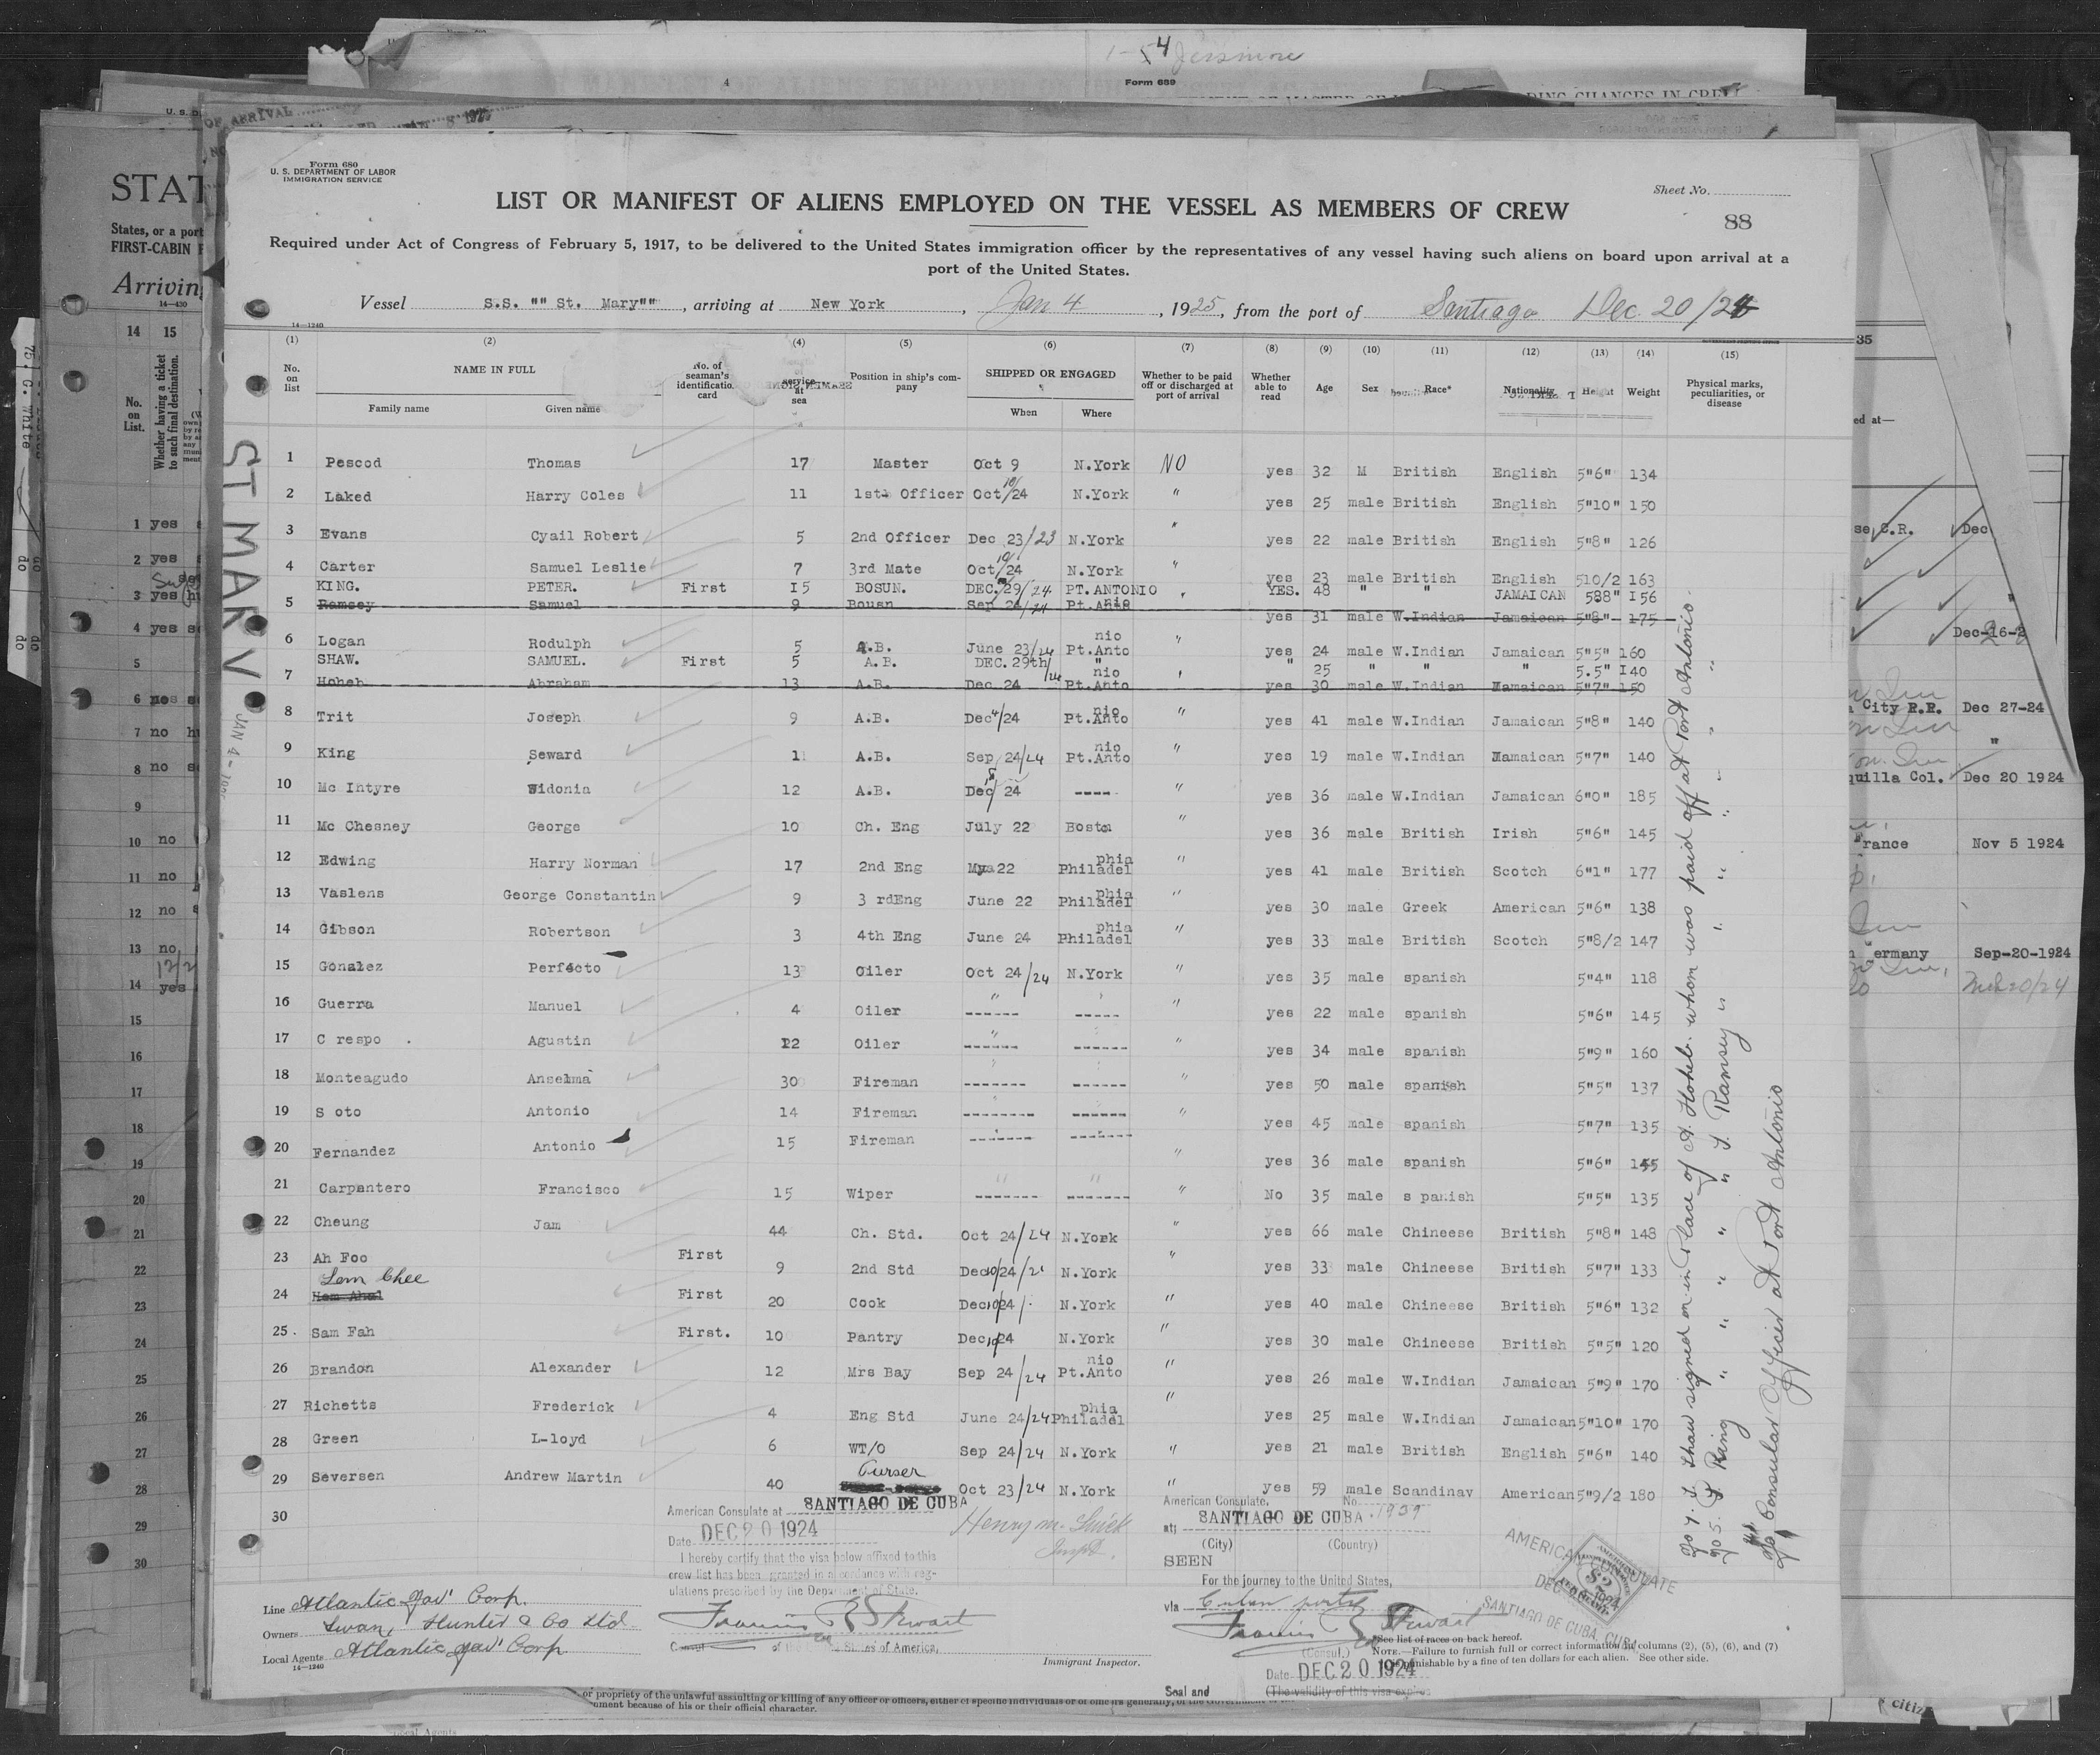 1-4 Jessmore
4
Form 689
Form 680
U. S. DEPARTMENT OF LABOR
IMMIGRATION SERVICE
Sheet No.
88
LIST OR MANIFEST OF ALIENS EMPLOYED ON THE VESSEL AS MEMBERS OF CREW
Required under Act of Congress of February 5, 1917, to be delivered to the United States immigration officer by the representatives of any vessel having such aliens on board upon arrival at a
port of the United States.
Vessel S.S. "" St. Mary"", arriving at New York, Jan 4, 1925, from the port of Santiago Dec. 20/24
14—1240
(1) (2) (4) (5) (6) (7) (8) (9) (10) (11) (12) (13) (14) (15)
No. on list
NAME IN FULL
Family name Given name
No. of seaman's identification card
service at sea
Position in ship's company
SHIPPED OR ENGAGED
When Where
Whether to be paid off or discharged at port of arrival
Whether able to read
Age Sex Race* Nationality Height Weight
Physical marks, peculiarities, or disease
ST MARY
JAN 4 -
1 Pescod Thomas 17 Master Oct 9 N.York NO yes 32 M British English 5"6" 134
2 Laked Harry Coles 11 1st Officer Oct 10/24 N.York " yes 25 male British English 5"10" 150
3 Evans Cyail Robert 5 2nd Officer Dec 23/23 N.York " yes 22 male British English 5"8" 126
4 Carter Samuel Leslie 7 3rd Mate Oct 10/24 N.York " yes 23 male British English 510/2 163
KING. PETER. First I5 BOSUN. DEC. 29/24 PT.ANTONIO " YES. 48 " " JAMAICAN 588" I56
5 Ramsey Samuel 9 Bousn Sep 24/24 Pt.Antonio yes 31 male W.Indian Jamaican 5"8" 175
6 Logan Rodulph 5 A.B. June 23/24 Pt.Antonio " yes 24 male W.Indian Jamaican 5"5" 160
SHAW. SAMUEL. First 5 A.B. DEC. 29th/24 " " 25 " " " 5.5" I40
7 Hoheb Abraham 13 A.B. Dec 24 Pt.Antonio " yes 30 male W.Indian Jamaican 5"7" 150
8 Trit Joseph 9 A.B. Dec 4/24 Pt.Antonio " yes 41 male W.Indian Jamaican 5"8" 140
9 King Seward 1 A.B. Sep 24/24 Pt.Antonio " yes 19 male W.Indian Jamaican 5"7" 140
10 Mc Intyre Widonia 12 A.B. Dec 24 ---- " yes 36 male W.Indian Jamaican 6"0" 185
11 Mc Chesney George 10 Ch. Eng July 22 Boston " yes 36 male British Irish 5"6" 145
12 Edwing Harry Norman 17 2nd Eng Mya 22 Philadelphia " yes 41 male British Scotch 6"1" 177
13 Vaslens George Constantin 9 3 rdEng June 22 Philadelphia " yes 30 male Greek American 5"6" 138
14 Gibson Robertson 3 4th Eng June 24 Philadelphia " yes 33 male British Scotch 5"8/2 147
15 Gonzlez Perfecto 13 Oiler Oct 24/24 N.York " yes 35 male spanish 5"4" 118
16 Guerra Manuel 4 Oiler ------ ----- " yes 22 male spanish 5"6" 145
17 C respo . Agustin 12 Oiler ------ ------ " yes 34 male spanish 5"9" 160
18 Monteagudo Anselma 30 Fireman ------- ------ " yes 50 male spanish 5"5" 137
19 S oto Antonio 14 Fireman -------- ------ " yes 45 male spanish 5"7" 135
20 Fernandez Antonio 15 Fireman ------- ------- " yes 36 male spanish 5"6" 155
21 Carpentero Francisco 15 Wiper ------- ------- " No 35 male s panish 5"5" 135
22 Cheung Jam 44 Ch. Std. Oct 24/24 N.York " yes 66 male Chineese British 5"8" 148
23 Ah Foo First 9 2nd Std Dec 10/24 N.York " yes 33 male Chineese British 5"7" 133
Lem Chee
24 First 20 Cook Dec 10/24 N.York " yes 40 male Chineese British 5"6" 132
25. Sam Fah First. 10 Pantry Dec 10 24 N.York " yes 30 male Chineese British 5"5" 120
26 Brandon Alexander 12 Mrs Bay Sep 24/24 Pt.Antonio " yes 26 male W.Indian Jamaican 5"9" 170
27 Richetts Frederick 4 Eng Std June 24/24 Philadelphia " yes 25 male W.Indian Jamaican 5"10" 170
28 Green L-loyd 6 WT/O Sep 24/24 N.York " yes 21 male British English 5"6" 140
29 Seversen Andrew Martin 40 Purser Oct 23/24 N.York " yes 59 male Scandinav American 5"9/2 180
30
No 7. S. Shaw signed on in Place of A. Hoheb. whom was paid off at Port Antonio.
No 5. P. King " " " " " S. Ramsey " " " " "
No Consular Officer at Port Antonio
American Consulate at SANTIAGO DE CUBA
Date DEC 20 1924
I hereby certify that the visa below affixed to this
crew list has been granted in accordance with reg-
ulations prescribed by the Department of State.
Francis R Stewart
Consul of the States of America,
Immigrant Inspector.
American Consulate, No. 1939
at: SANTIAGO DE CUBA
(City) (Country)
SEEN
For the journey to the United States,
via Cuban ports
Francis R Stewart
(Consul.)
Date DEC 20 1924
Seal and (The validity of this visa expires
AMERICAN CONSULATE
SANTIAGO DE CUBA, CUBA
$2
Line Atlantic Nav' Corp.
Owners Swan, Hunter & Co Ltd
Local Agents Atlantic Nav' Corp
14—1240
*See list of races on back hereof.
NOTE.—Failure to furnish full or correct information in columns (2), (5), (6), and (7)
is punishable by a fine of ten dollars for each alien. See other side.
or propriety of the unlawful assaulting or killing of any officer or officers, either of specific individuals or of officers generally, of the Government
nment because of his or their official character.
STAT
States, or a port
FIRST-CABIN
Arriving
14—430
14 15
No. on List.
Whether having a ticket to such final destination.
1 yes
2 yes
3 yes
4 yes
5
6 no
7 no
8 no
9
10 no
11 no
12 no
13 no
14 yes
15
16
17
18
19
20
21
22
23
24
25
26
27
28
29
30
35
ed at—
se, C.R. Dec
Dec-16-2
City R.R. Dec 27-24
quilla Col. Dec 20 1924
France Nov 5 1924
ermany Sep-20-1924
citiz